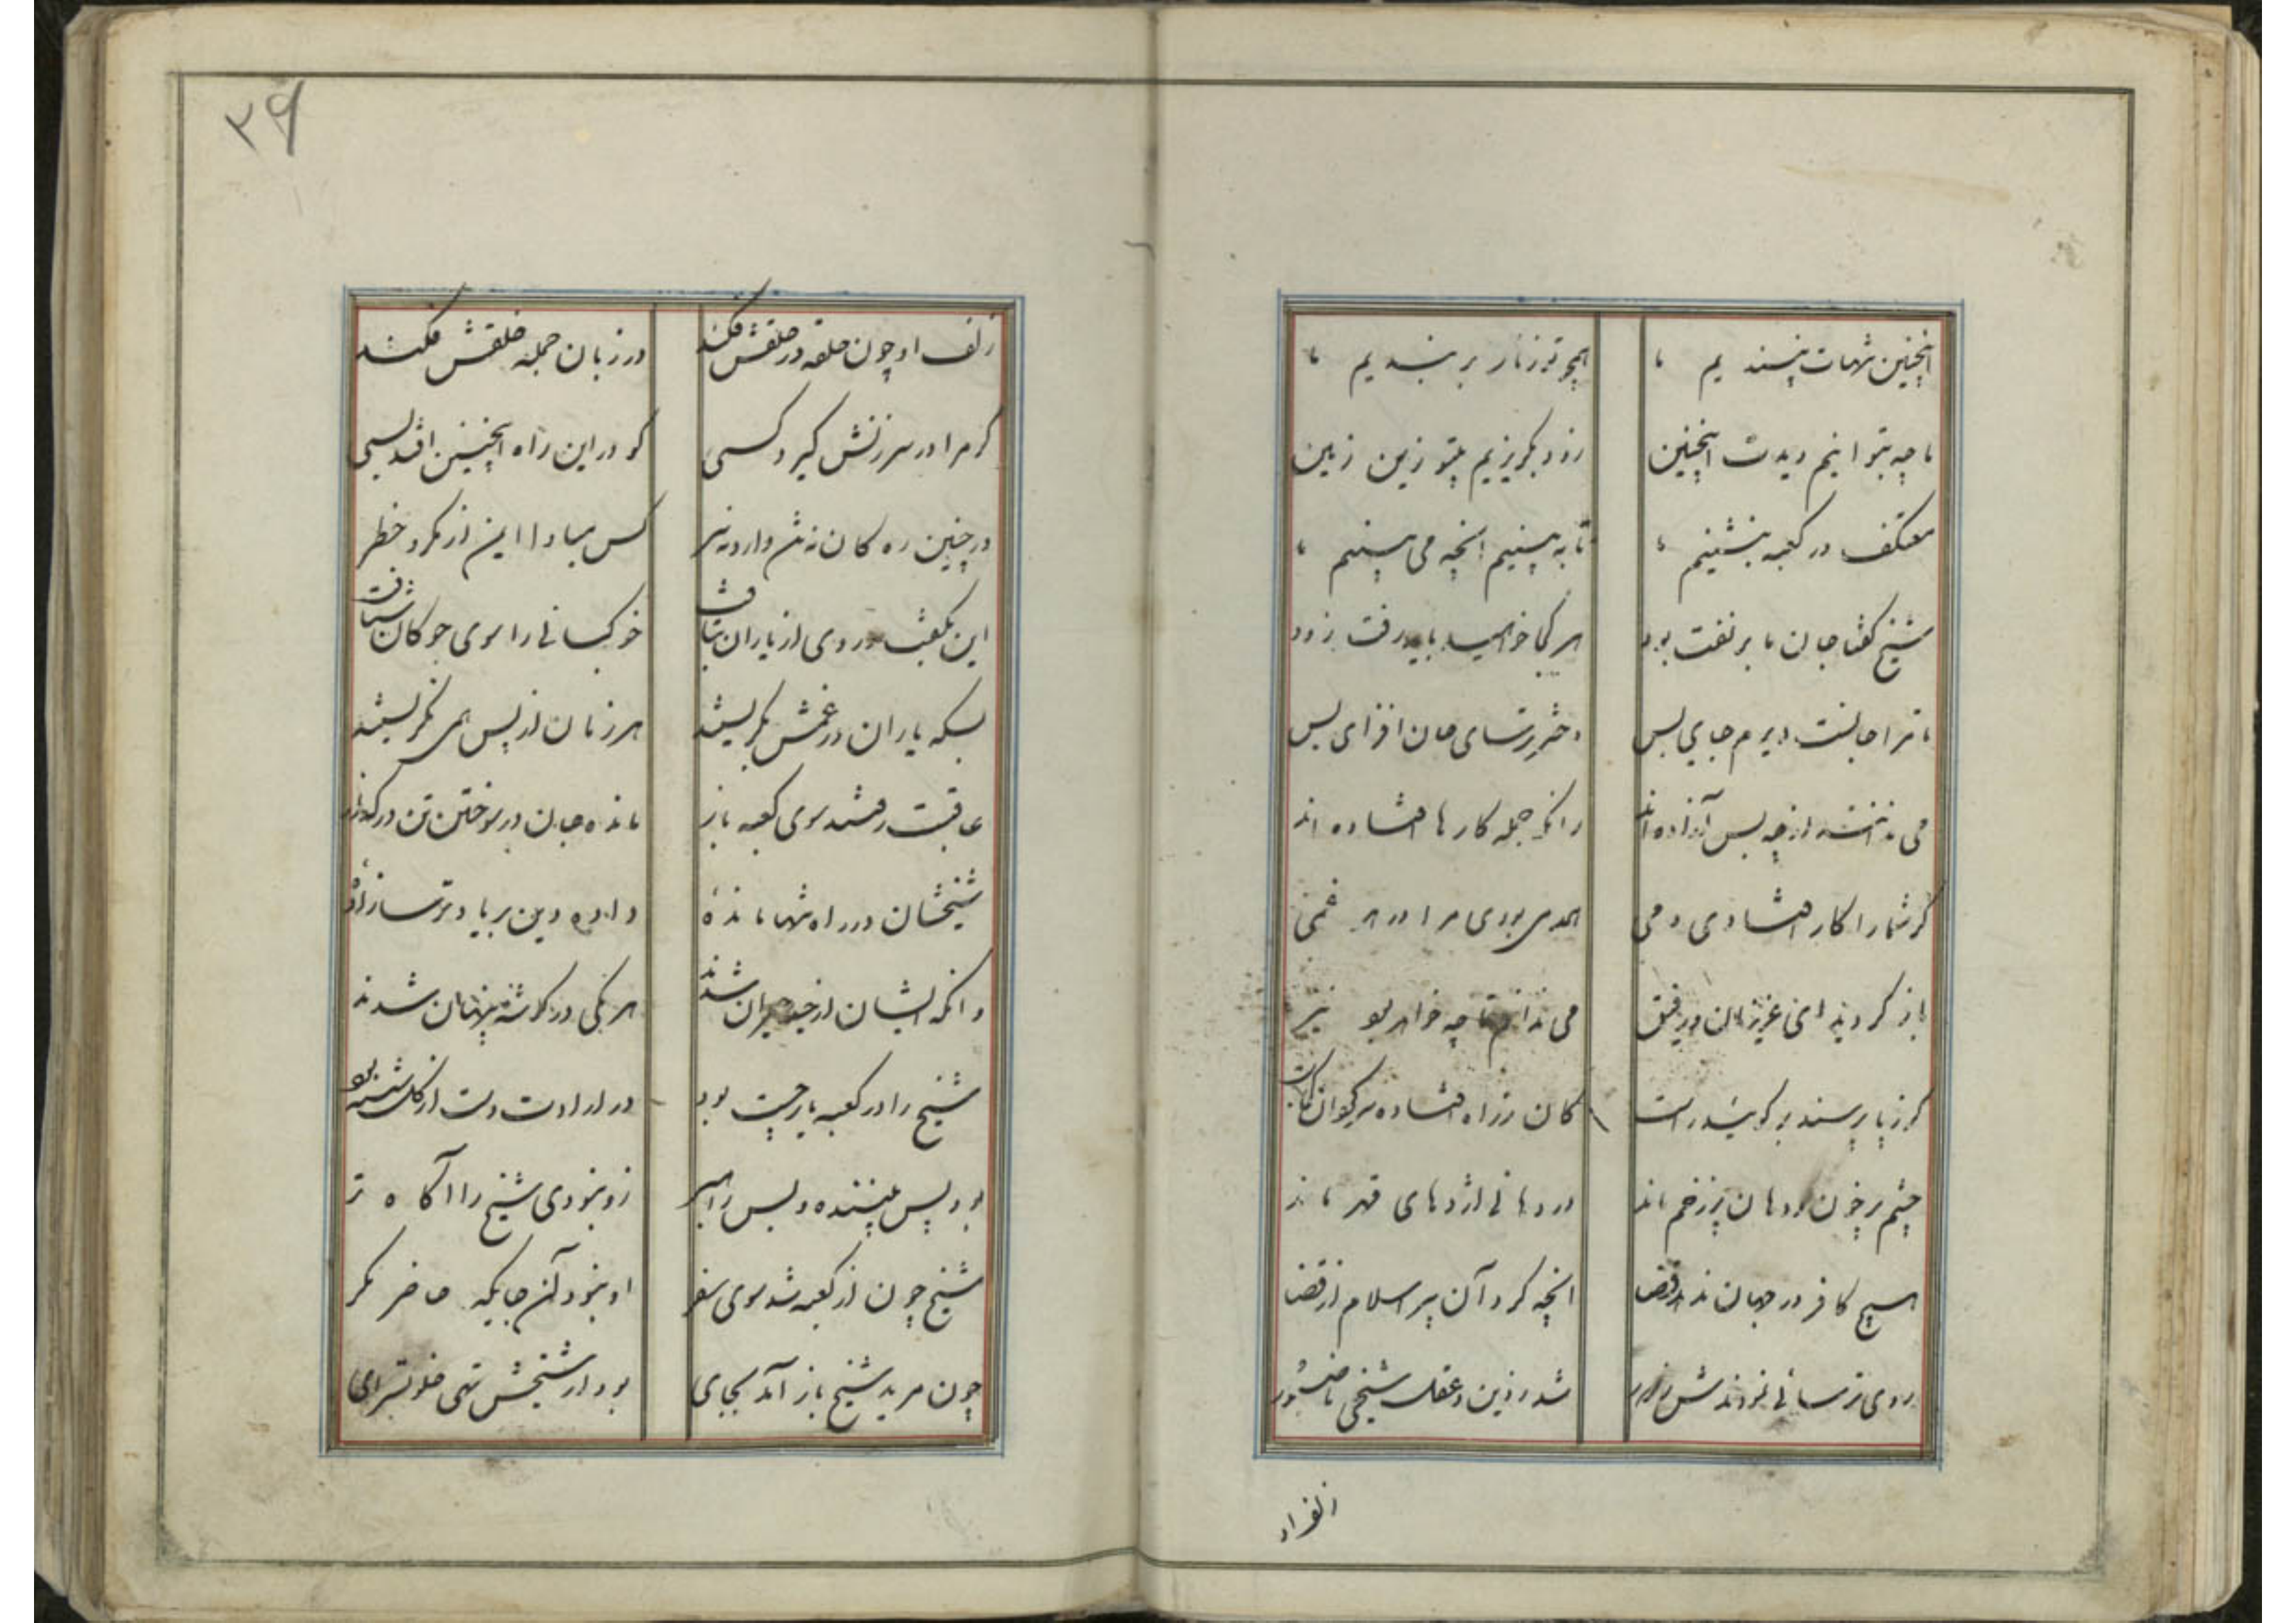 اینچنین تنهات نپسندیم ما
همچو تو زنار بربندیم ما
ما چه نتوانیم دیدت اینچنین
زود بگریزیم بیتو زین زمین
معتکف در کعبه بنشینیم ما
تا نه بینیم انچه می بینیم ما
شیخ گفتا جان ما بر تفت بود
هر کجا خواهید باید رفت زود
تا مرا جانست دیرم جای بس
دختر ترسای جان افزای بس
می ندانند ارچه بس آزاده اند
زانکه جمله کارها افتاده اند
گر شما را کار افتادی دمی
همدمی بودی مرا در هر غمی
باز گردید ای عزیزان رفیق
می ندانم تا چه خواهد بود نیز
گر ز ما پرسند بر گوئید راست
کان ز راه افتاده سرگردان کجاست
چشم پر خون و دهان پر زخم ماند
در دهانی اژدهای قهر ماند
هیچ کافر در جهان ندهد رضا
انچه کرد آن پیر اسلام از قضا
روی ترسائی نمودندش ز دور
شد ز دین و عقل شیخی ناصبور
۲۶
زلف او چون حلقه در حلقش فکند
در زبان جمله خلقش فکند
گر مرا در سرزنش گیرد کسی
گو در این راه اینچنین افتد بسی
در چنین ره کان نه بن دارد نه سر
کس مبادا ایمن از مکر و خطر
این بگفت و روی از یاران بتافت
خوکبانی را سوی خوکان شتافت
بسکه یاران در غمش بگریستند
هر زمان از پس همی نگریستند
عاقبت رفتند سوی کعبه باز
مانده جان در سوختن تن در گداز
شیخشان در راه تنها مانده
داده دین بر باد ترسا زاده
وانگه ایشان از حیا حیران شدند
هر یکی در گوشه پنهان شدند
شیخ را در کعبه یار چست بود
در ارادت دست از کل شسته بود
بود بس بیننده و بس راهبر
زو نبودی شیخ را آگاه تر
شیخ چون از کعبه شد سوی سفر
او نبود آن جایگه حاضر مگر
چون مرید شیخ باز آمد بجای
بود از شیخش تهی خلوتسرای